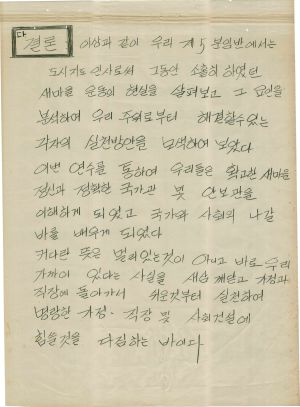 다
결론 이상과 같이 우리 제5분임반에서는
도시지도 인사로써 그동안 소홀히 하였던
새마을 운동의 현실을 살펴보고 그 요인을
분석하여 우리 주위로부터 해결할수있는
각자의 실천방안을 모색하여 보았다
이번 연수를 통하여 우리들은 확고한 새마을
정신과 정확한 국가관 및 안보관을
이해하게 되었고 국가와 사회의 나갈
바를 배우게 되었다
커다란 뜻은 멀리있는것이 아니고 바로 우리
가까이 있다는 사실을 새삼 깨닫고 가정과
직장에 돌아가서 쉬운것부터 실천하여
명랑한 가정·직장 및 사회건설에
힘쓸것을 다짐하는 바이다